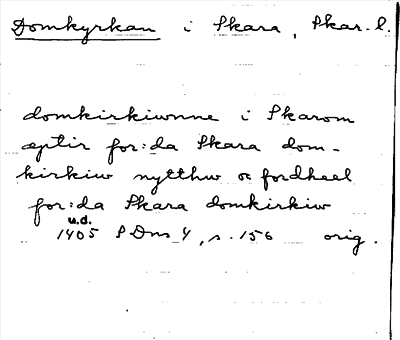 Domkyrkan i Skara, Skar. l.
domkirkiwnne i Skarom
æptir for:da Skara dom-
kirkiw nytthw oc fordheel
for:da Skara domkirkiw
u.d.
1405 SDns 4, s. 156 orig.